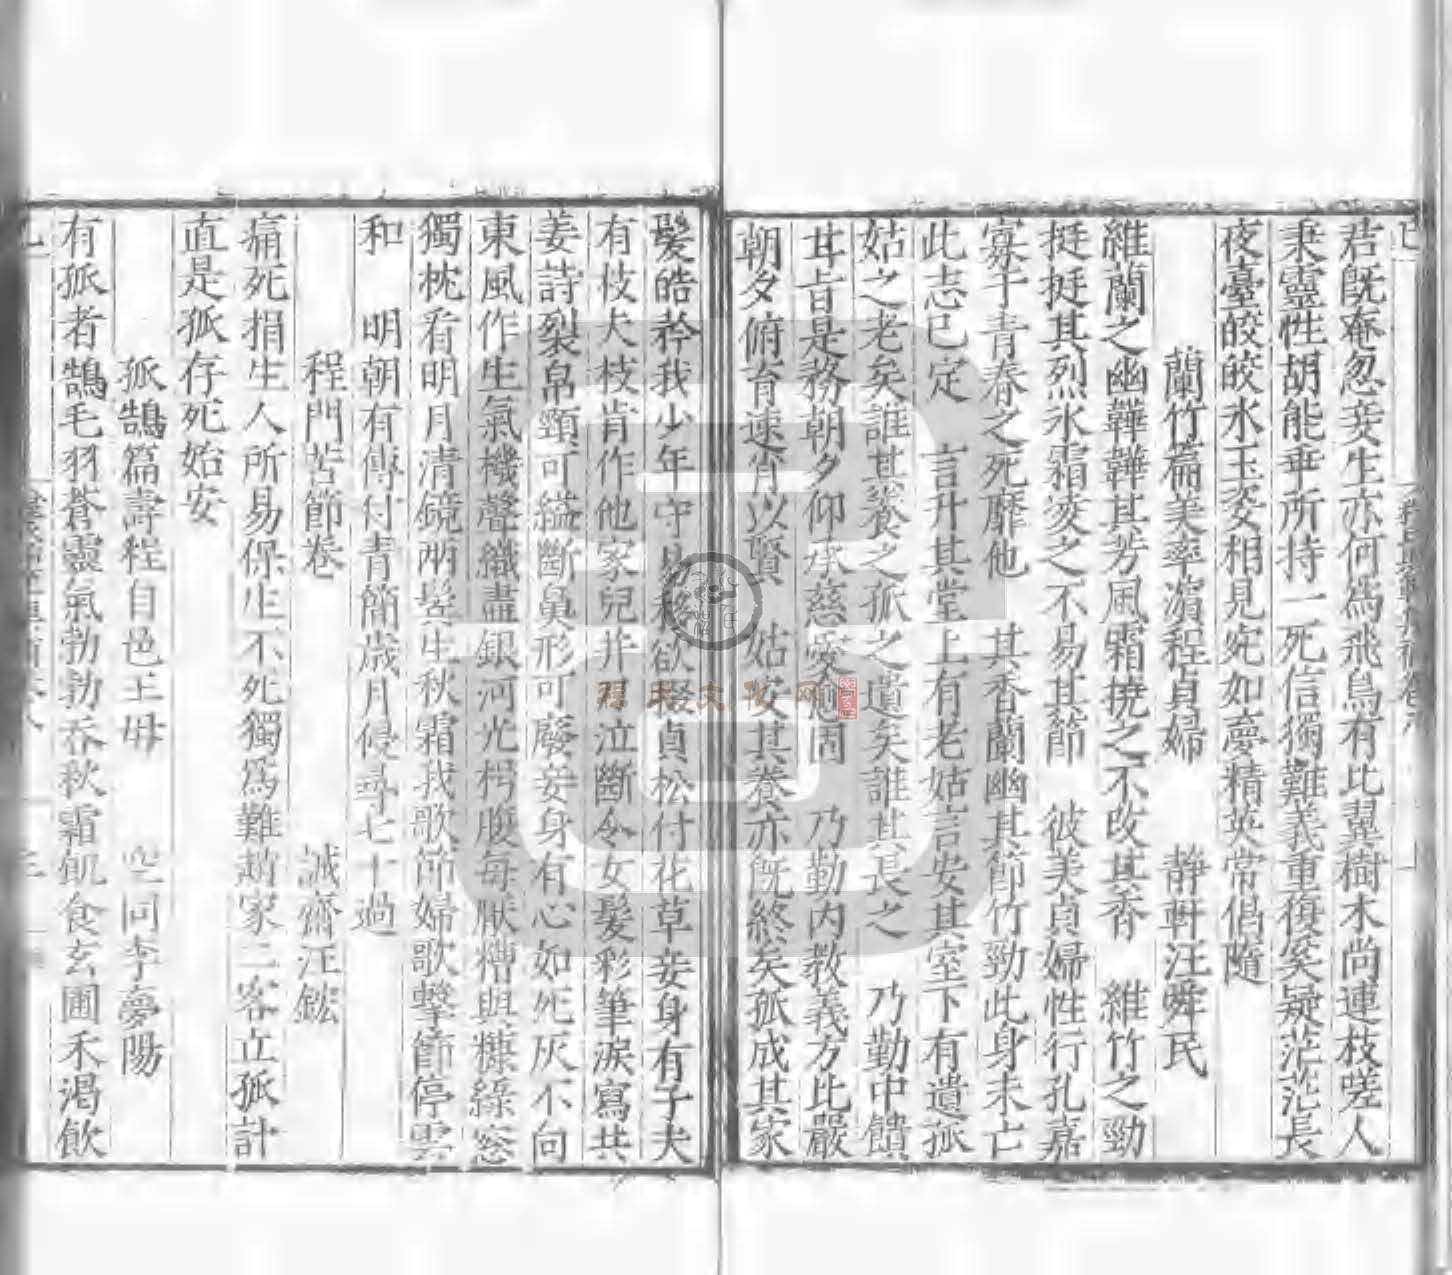 君旣奄忽妾生亦何爲飛鳥有比翼樹木尚連枝嗟人
秉靈性胡能乖所持一死信獨難義重復奚疑茫茫長
夜臺皎皎氷玉姿相見宛如夢精英常侶隨
蘭竹篇美率濱程貞婦 静軒汪舜民
維蘭之幽韡韡其芳風霜撓之不改其香 維竹之勁
挺挺其烈氷霜凌之不易其節 彼美貞婦性行孔嘉
寡于青春之死靡他 其香蘭幽其節竹勁此身未亡
此志已定 言升其堂上有老姑言安其室下有遺孤
姑之老矣誰其養之孤之遺矣誰其長之 乃勤中饋
甘旨是務朝夕仰承慈愛 固 乃勤内教義方比嚴
朝夕俯育速肖以賢 姑安其養亦旣終矣孤成其家
髮皓矜我少年守 貞松付花草妾身有子夫
有枝大枝肯作他家兒井 泣斷令女髮彩筆淚寫共
姜詩裂帛頸可縊斷鼻形可廢妾身有心如死灰不向
東風作生氣機聲織盡銀河光枵腹每厭糟與糠綠窓
獨枕看明月清鏡兩髩生秋霜我歌節婦歌擊節停雲
和 明朝有傳付青簡歲月侵尋七十過
程門苦節卷 誠齋汪鋐
痛死捐生人所易保生不死獨爲難趙家二客立孤計
直是孤存死始安
孤鵠篇壽程自邑王母 空同李夢陽
有孤者鵠毛羽蒼靈氣勃勃吞秋霜飢食玄圃禾渴飲
程氏文化网